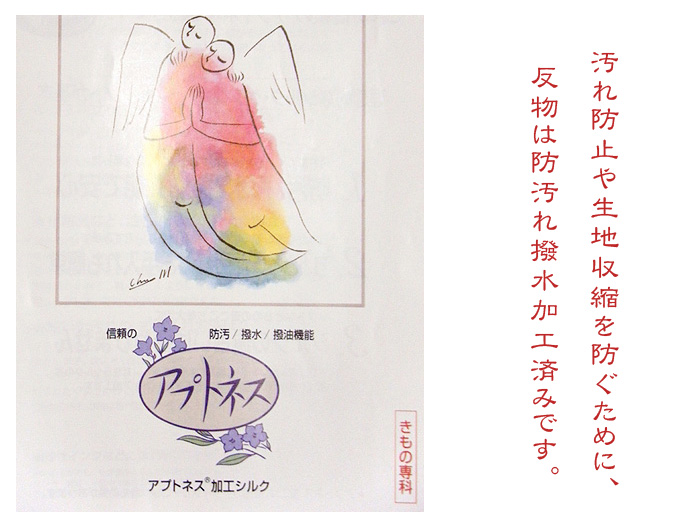 汚れ防止や生地収縮を防ぐために、
反物は防汚れ撥水加工済みです。
信頼の 防汚/撥水/撥油機能
アプトネス
アプトネス®加工シルク
きもの専科